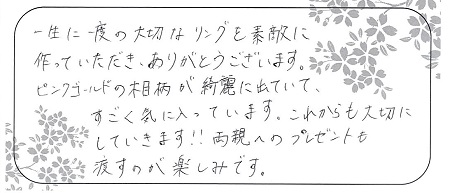 一生に一度の大切なリングを素敵に
作っていただき、ありがとうございます。
ピンクゴールドの木目柄が綺麗に出ていて、
すごく気に入っています。これからも大切に
していきます!! 両親へのプレゼントも
渡すのが楽しみです。